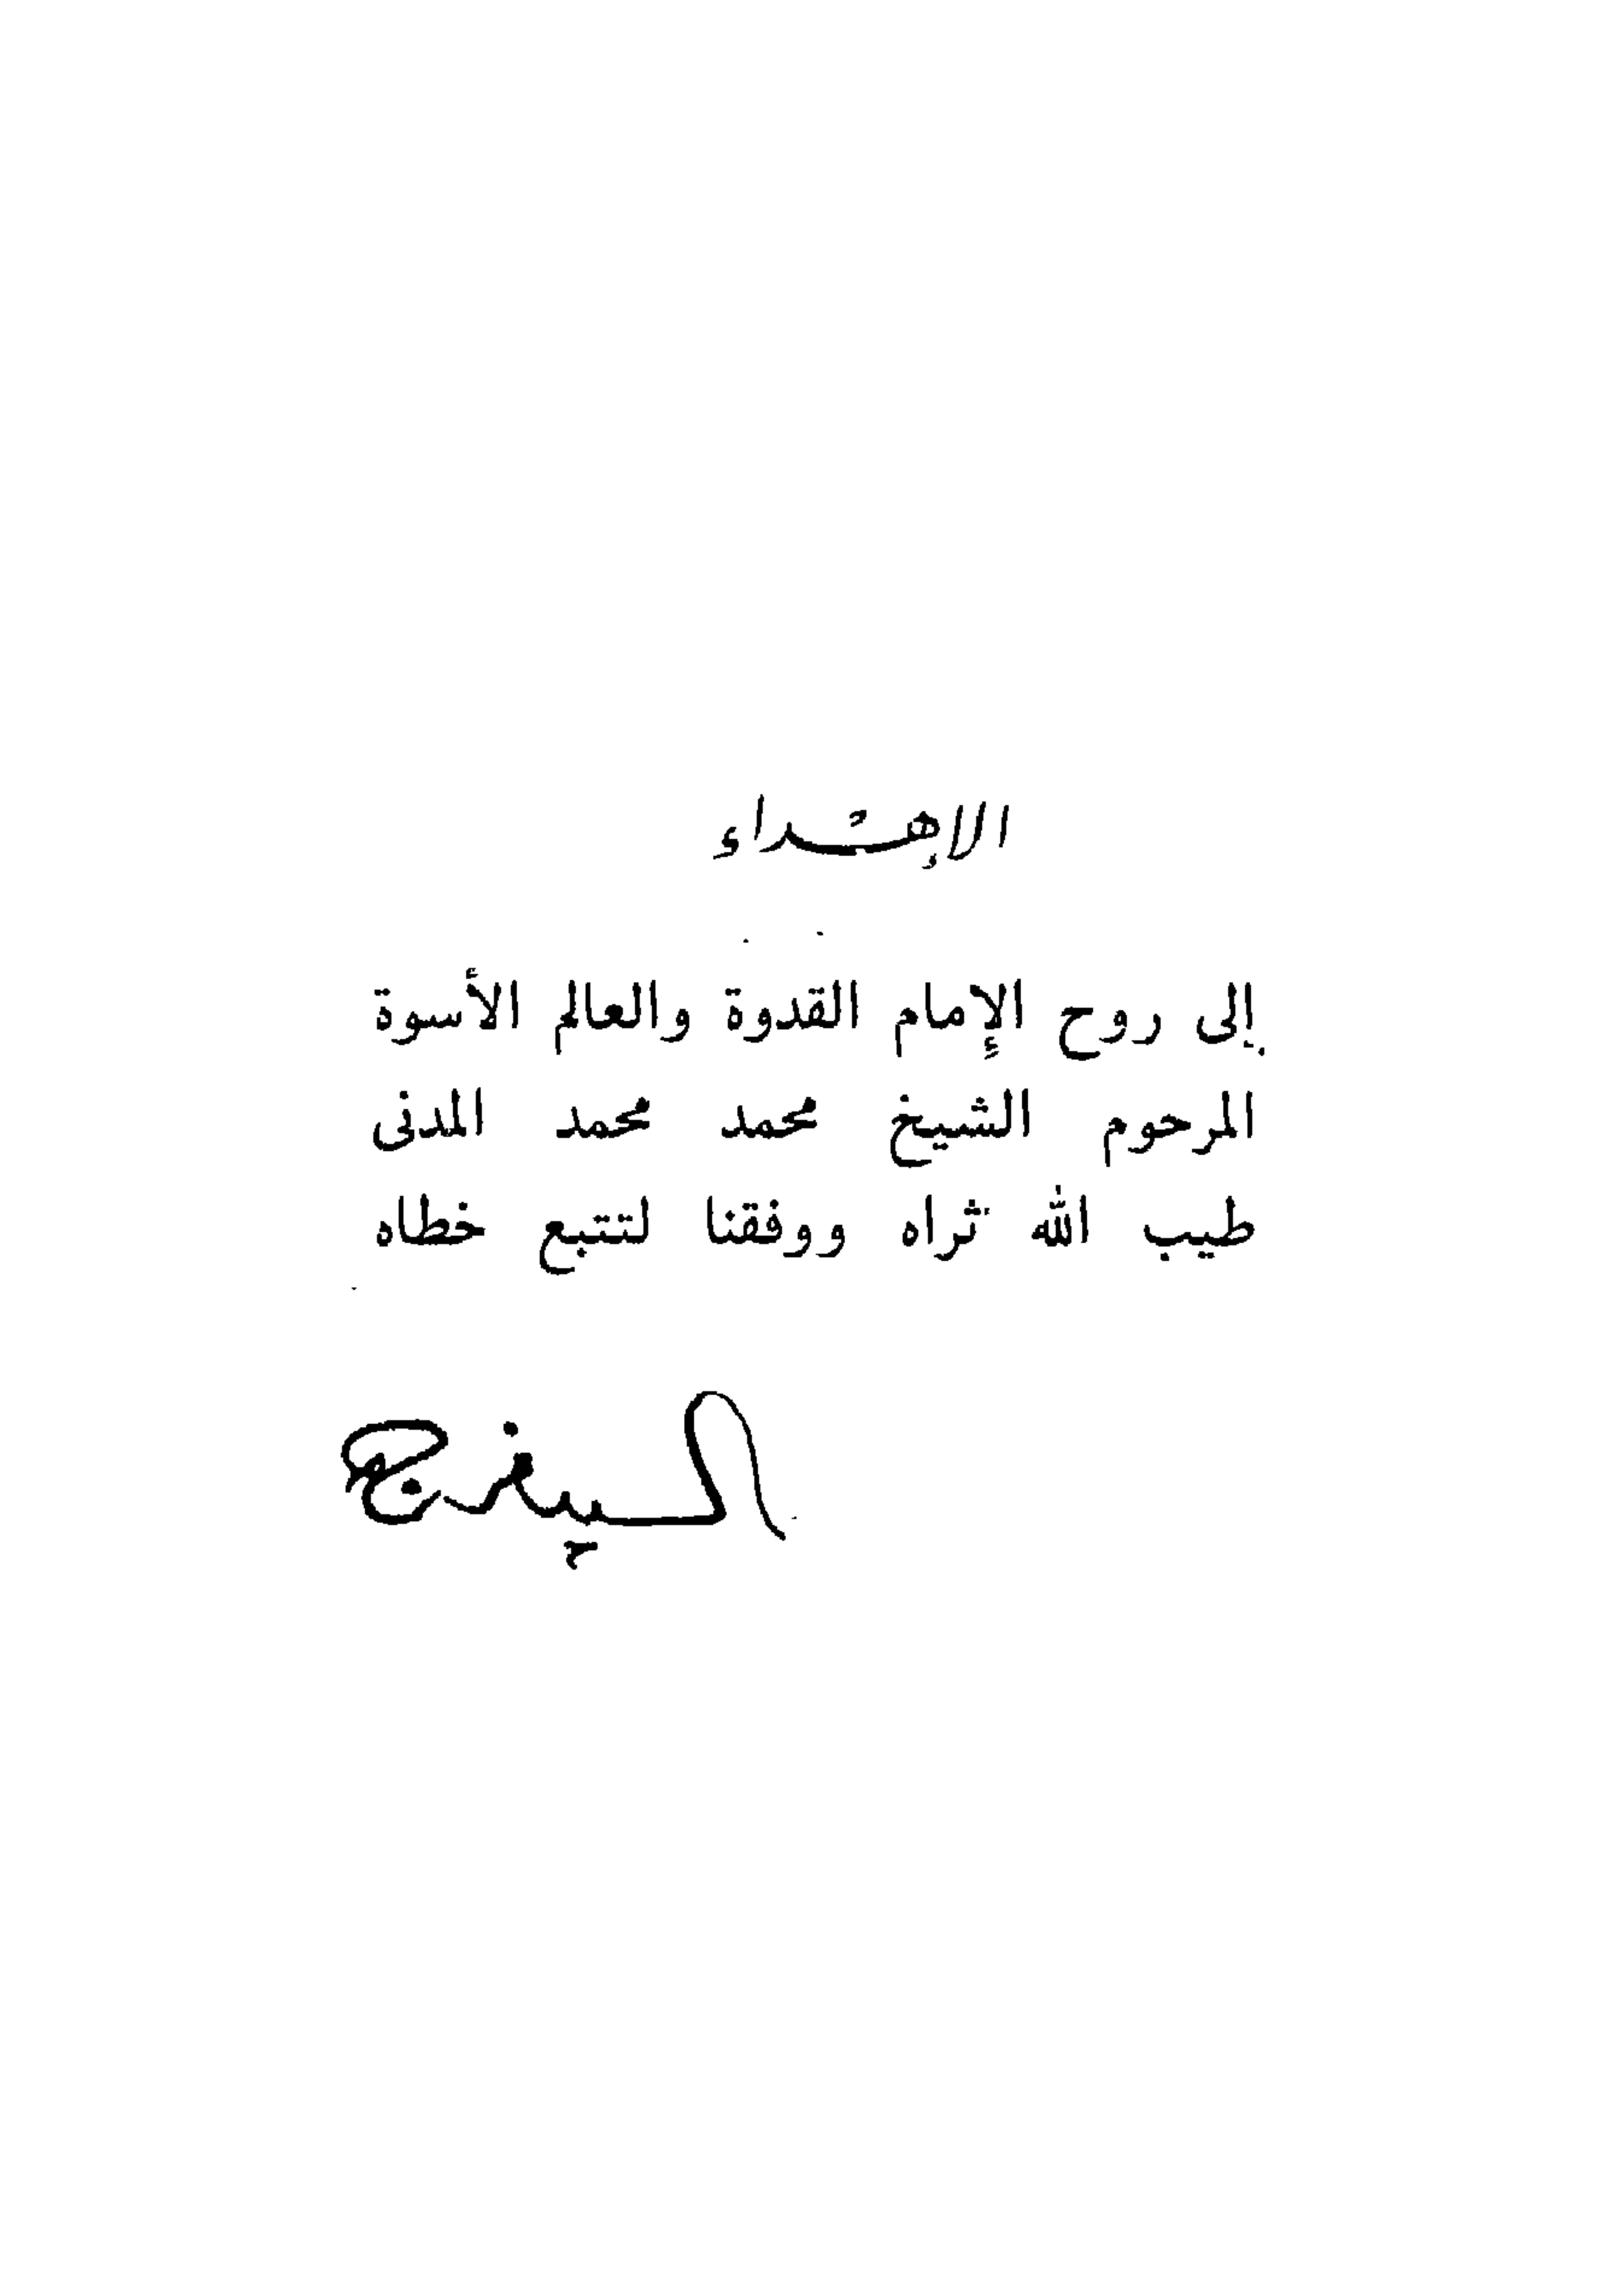 الإهداء
إلى روح الإمام القدوة والعالم الأسوة
المرحوم الشيخ محمد محمد المدنى
طيب الله ثراه ووفقنا لتتبع خطاه
السيد فرج